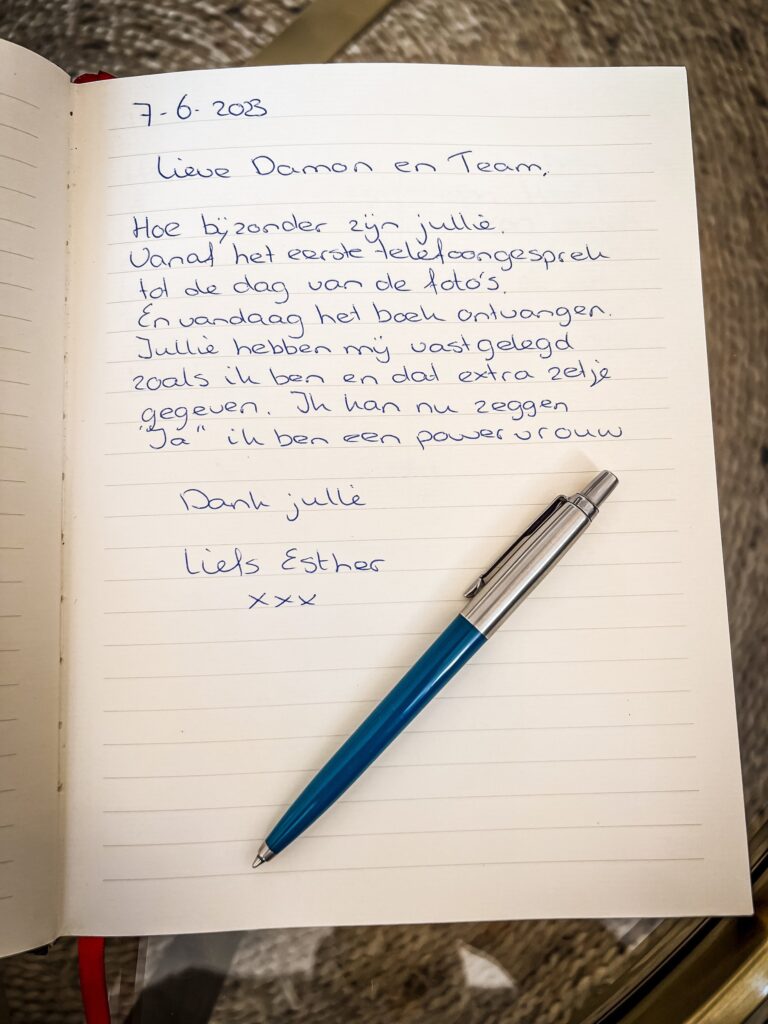 7-6-2023
Lieve Damon en Team,
Hoe bijzonder zijn jullie.
Vanaf het eerste telefoongesprek
tot de dag van de foto's.
En vandaag het boek ontvangen.
Jullie hebben mij vastgelegd
zoals ik ben en dat extra zetje
gegeven. Ik kan nu zeggen
"Ja" ik ben een powervrouw
Dank jullie
Liefs Esther
xxx